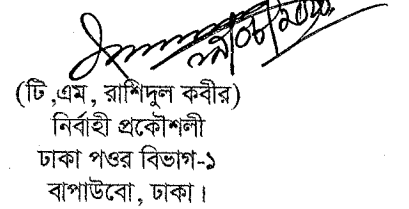 (টি,এম, রাশিদুল কবীর)
নির্বাহী প্রকৌশলী
ঢাকা পওর বিভাগ-১
বাপাউবো, ঢাকা।